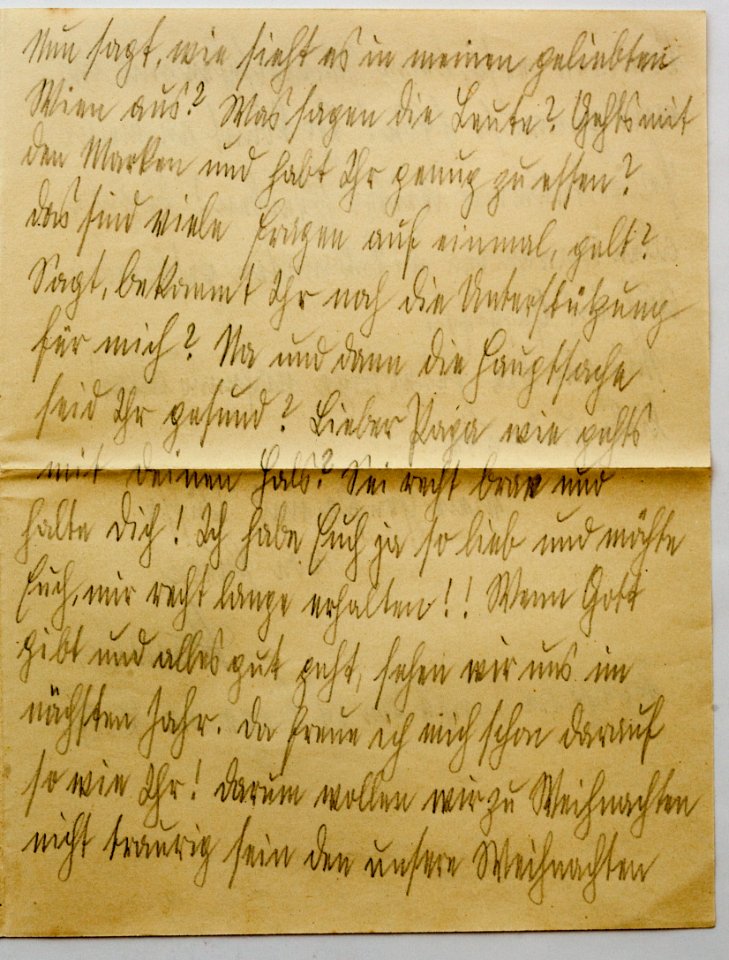 Nun sagt, wie sieht es in meinen geliebten
Wien aus? Was sagen die Leute? Gehts mit
den Marken und habt Ihr genug zu essen?
Das sind viele Fragen auf einmal, gelt?
Sagt, bekommt Ihr noch die Unterstützung
für mich? Na und dann die Hauptsache
seid Ihr gesund? Lieber Papa wie gehts
mit deinen Hals? Sei recht brav und
halte Dich! Ich habe Euch ja so lieb und möchte
Euch, mir recht lange erhalten!! Wenn Gott
gibt und alles gut geht, sehen wir uns im
nächsten Jahr. Da freue ich mich schon darauf
so wie Ihr! Darum wollen wir zu Weihnachten
nicht traurig sein den unsere Weihnachten